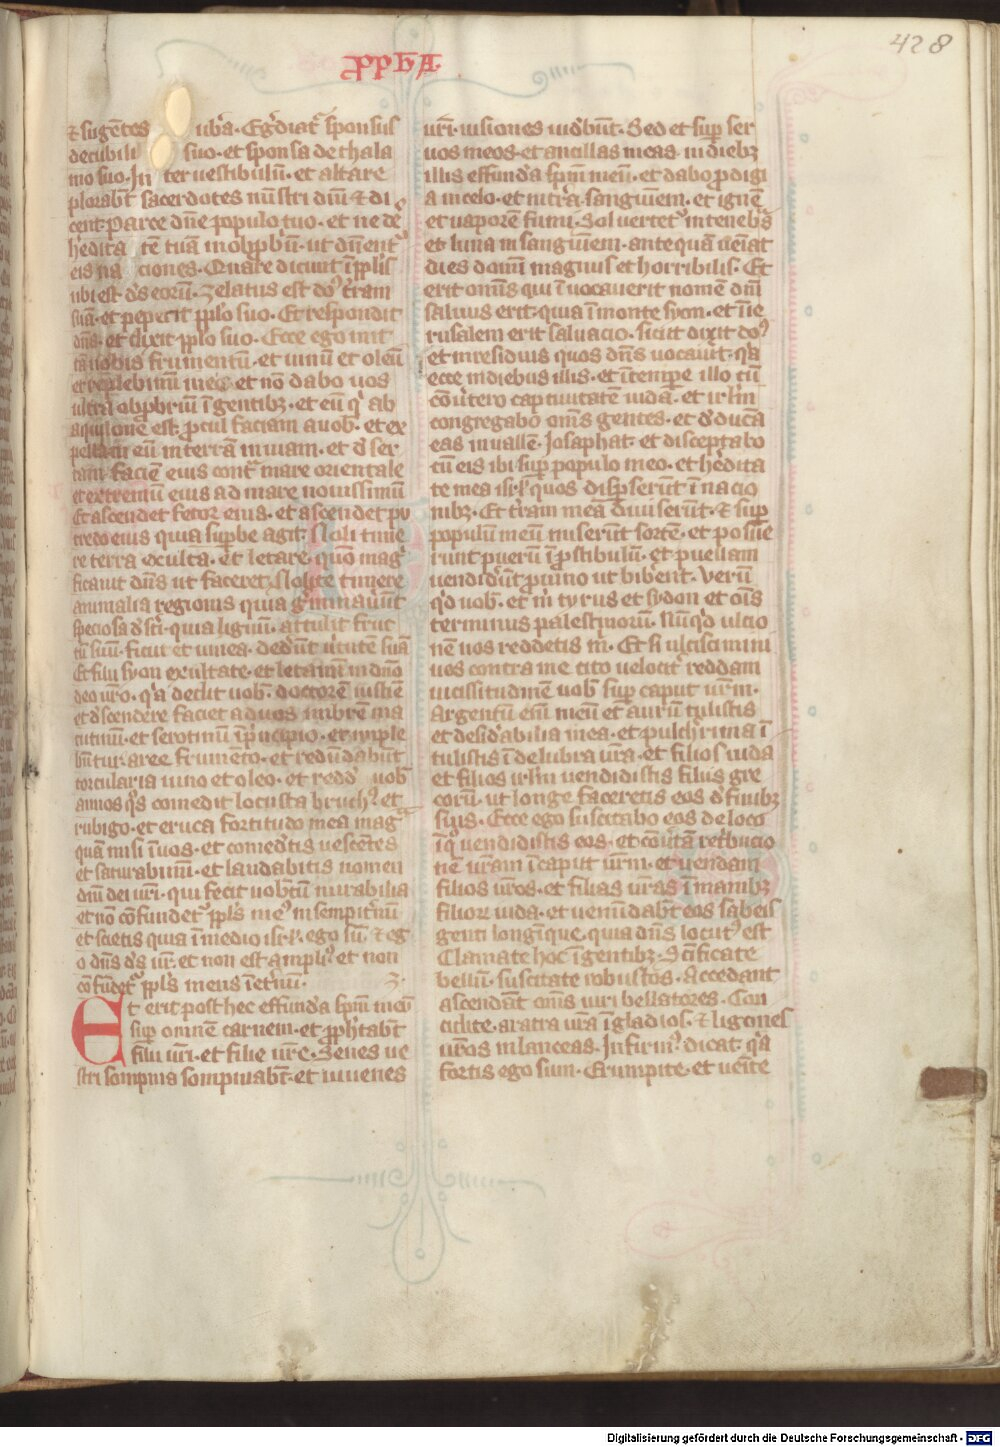 428
PPHA
⁊ sugētes ub̄a. Eg̃diat᷑ sponsus
de cubili suo. et sponsa de thala
mo suo. In ter uestibulū. et altare
plorabt̄ sacerdotes mīstri dn̄i ⁊ di
cent parce dn̄e populo tuo. et ne des
hedita tē tuā in obprbr̄iū. ut dn̄ent᷑
eis na ciones. Quare dicūt ī ppl̄is
ubi est d̄s eorū. Zelatus est dn̄s terram
suā. et pepercit ppl̄o suo. Et respondit
dn̄s. et dixit ppl̄o suo. Ecce ego mit
tā uobis frumentū. et uinū et oleū
et replebimī in eis et nō dabo uos
ultra obprbriū ī gentibꝫ. et eū q̄ ab
aquilone est. procul faciam a uob. et ex
pellam eū in terrā inuiam. et d̄ser
tam faciē eius cont̃ mare orientale
et extremū eius ad mare nouissimū
Et ascendet fetor eius. et ascendet pu
tredo eius quia supbe agit. Noli time
re terra exulta. et letare. quō mag
ficauit dn̄s ut faceret. Nolite timere
animalia regionis quia g̃minauūt
speciosa d̄sti. quia lignū. attulit fruc
tū suū. ficus et uinea. dedūt uirtutē suā
Et filii syon exultate. et letamī in dn̄o
deo ur̄o. q̄a dedit uob doctorē iusticie
et d̄scendere faciet ad uos imbrē ma
tutinū. et serotinū ī principio. et imple
būtur aree frumēto. et redūdabūt
torcularia uino et oleo. et redd̄ uob
annos q̄s comedit locusta bruchꝰ et
rubigo. et eruca fortitudo mea mag
quā misi ī uos. et comedetis uescētes
et saturabimī. et laudabitis nomen
dn̄i dei ur̄i. qui fecit uobcū mirabilia
et non cōfundetᷣ ppl̄s meꝰ in sempitnū
et scietis quia ī medio isrl̄. ego sū. ⁊ eg
o dn̄s d̄s ur̄. et non est ampliꝰ et non
cōfūdetᷣ ppl̄s meus ī et̃nū.
Et erit post hec effundā spm̄ meū
sup̄ omnē carnem. et pphtabt̄
filii ur̄i. et filie ur̄e. Senes ue
stri sompnia sompniabt̄. et iuuenes
ur̄i uisiones uidbūt. Sed et sup̄ ser
uos meos et ancillas meas in diebꝫ
illis effundā spm̄ meū. et dabo prodigi
a in celo. et in tr̄a. sanguiem. et ignē
et uaporē fumi. Sol uertetᷣ in tenebs̄
et luna in sanguiem. antequā ueiāt
dies domī magnus et horribilis. Et
erit omīs qui īuocauerit nomē dn̄i
saluus erit. quia ī monte syon. et ī ie
rusalem erit saluacio. sicut dixit dn̄s
et in residuis quos dn̄s uocauit. q̄a
ecce in diebus illis. et ī tempe illo cū
cōūtero captiuitatē iuda. et irlm̄
congregabo omīs gentes. et d̄ducā
eas in uallē Iosaphat. et disceptabo
cū eis ibi. sup̄ populo meo. et hedita
te mea isrl̄. quos dispserūt ī nacio
nibꝫ. Et tr̄am meā diuiserūt. ⁊ sup̄
populū meū miserūt sortē. et posue
runt puerū ī prostibulū. et puellam
uendidūt pro uino ut bibent. Verū
qd̄ uob. et m̄ tyrus et sydon et ōis
terminus palestinorū. Nūqd̄ ulcio
nē uos reddetis m̄. Et si ulciscimini
uos contra me cito uelocit᷑ reddam
uicissitudinē uob sup̄ caput ur̄m.
Argentū eni meū et aurū tulistis
et desidabilia mea. et pulcherrima ī
tulistis ī delubra ur̄a. et filios iuda
et filios irlm̄ uendidistis filiis gre
corū. ut longe faceretis eos d̄ finibꝫ
suis. Ecce ego suscitabo eos de loco
ī qͦ uendidistis eos. et cōūtā retbucio
nē ur̄am ī caput ur̄m. et uendam
filios ur̄os. et filias ur̄as ī manibꝫ
filioꝝ iuda. et uenūdabt̄ eos sabeis
genti longīque. quia dn̄s locutꝰ est
Clamate hoc ī gentibꝫ. Scīficate
bellū. suscitate robustos. Accedant
ascendāt omīs uiri bellatores. Con
cidite. aratra ur̄a ī gladios. ⁊ ligones
ur̄os in lanceas. Infirmꝰ dicat. q̄a
fortis ego sum. Erumpite. et ueīte
Digitalisierung gefördert durch die Deutsche Forschungsgemeinschaft - DFG